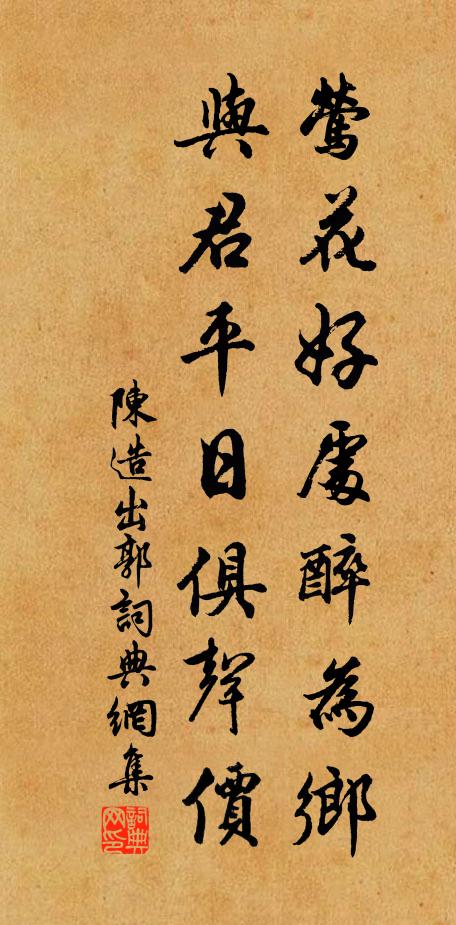 鶯花好處醉為鄉
與君平日俱聲價
陳造出郭詞典網集
詞典網印